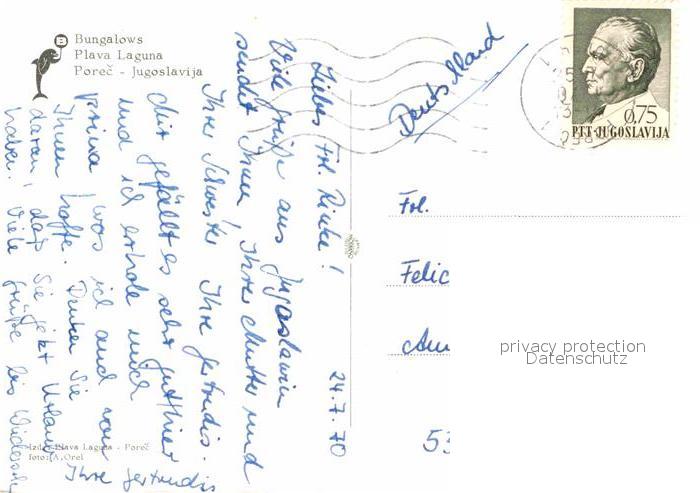 Bungalows
Plava Laguna
Poreč - Jugoslavija
24.7.70
Liebes Frl. Rinke!
Viele Grüße aus Jugoslawien
sendet Ihnen, Ihrer Mutter und
Ihrer Schwester Ihre Gertrudis.
Mir gefällt es sehr gut hier
und ich erhole mich
prima was ich auch von
Ihnen hoffe. Denken Sie
daran, daß Sie jetzt Urlaub
haben. Viele Grüße bis Wiedersehn
Ihre Gertrudis
Izdaje Plava Laguna - Poreč
foto: A. Orel
Deutschland
0,75
PTT-JUGOSLAVIJA
Frl.
Felic
Am
53
privacy protection
Datenschutz